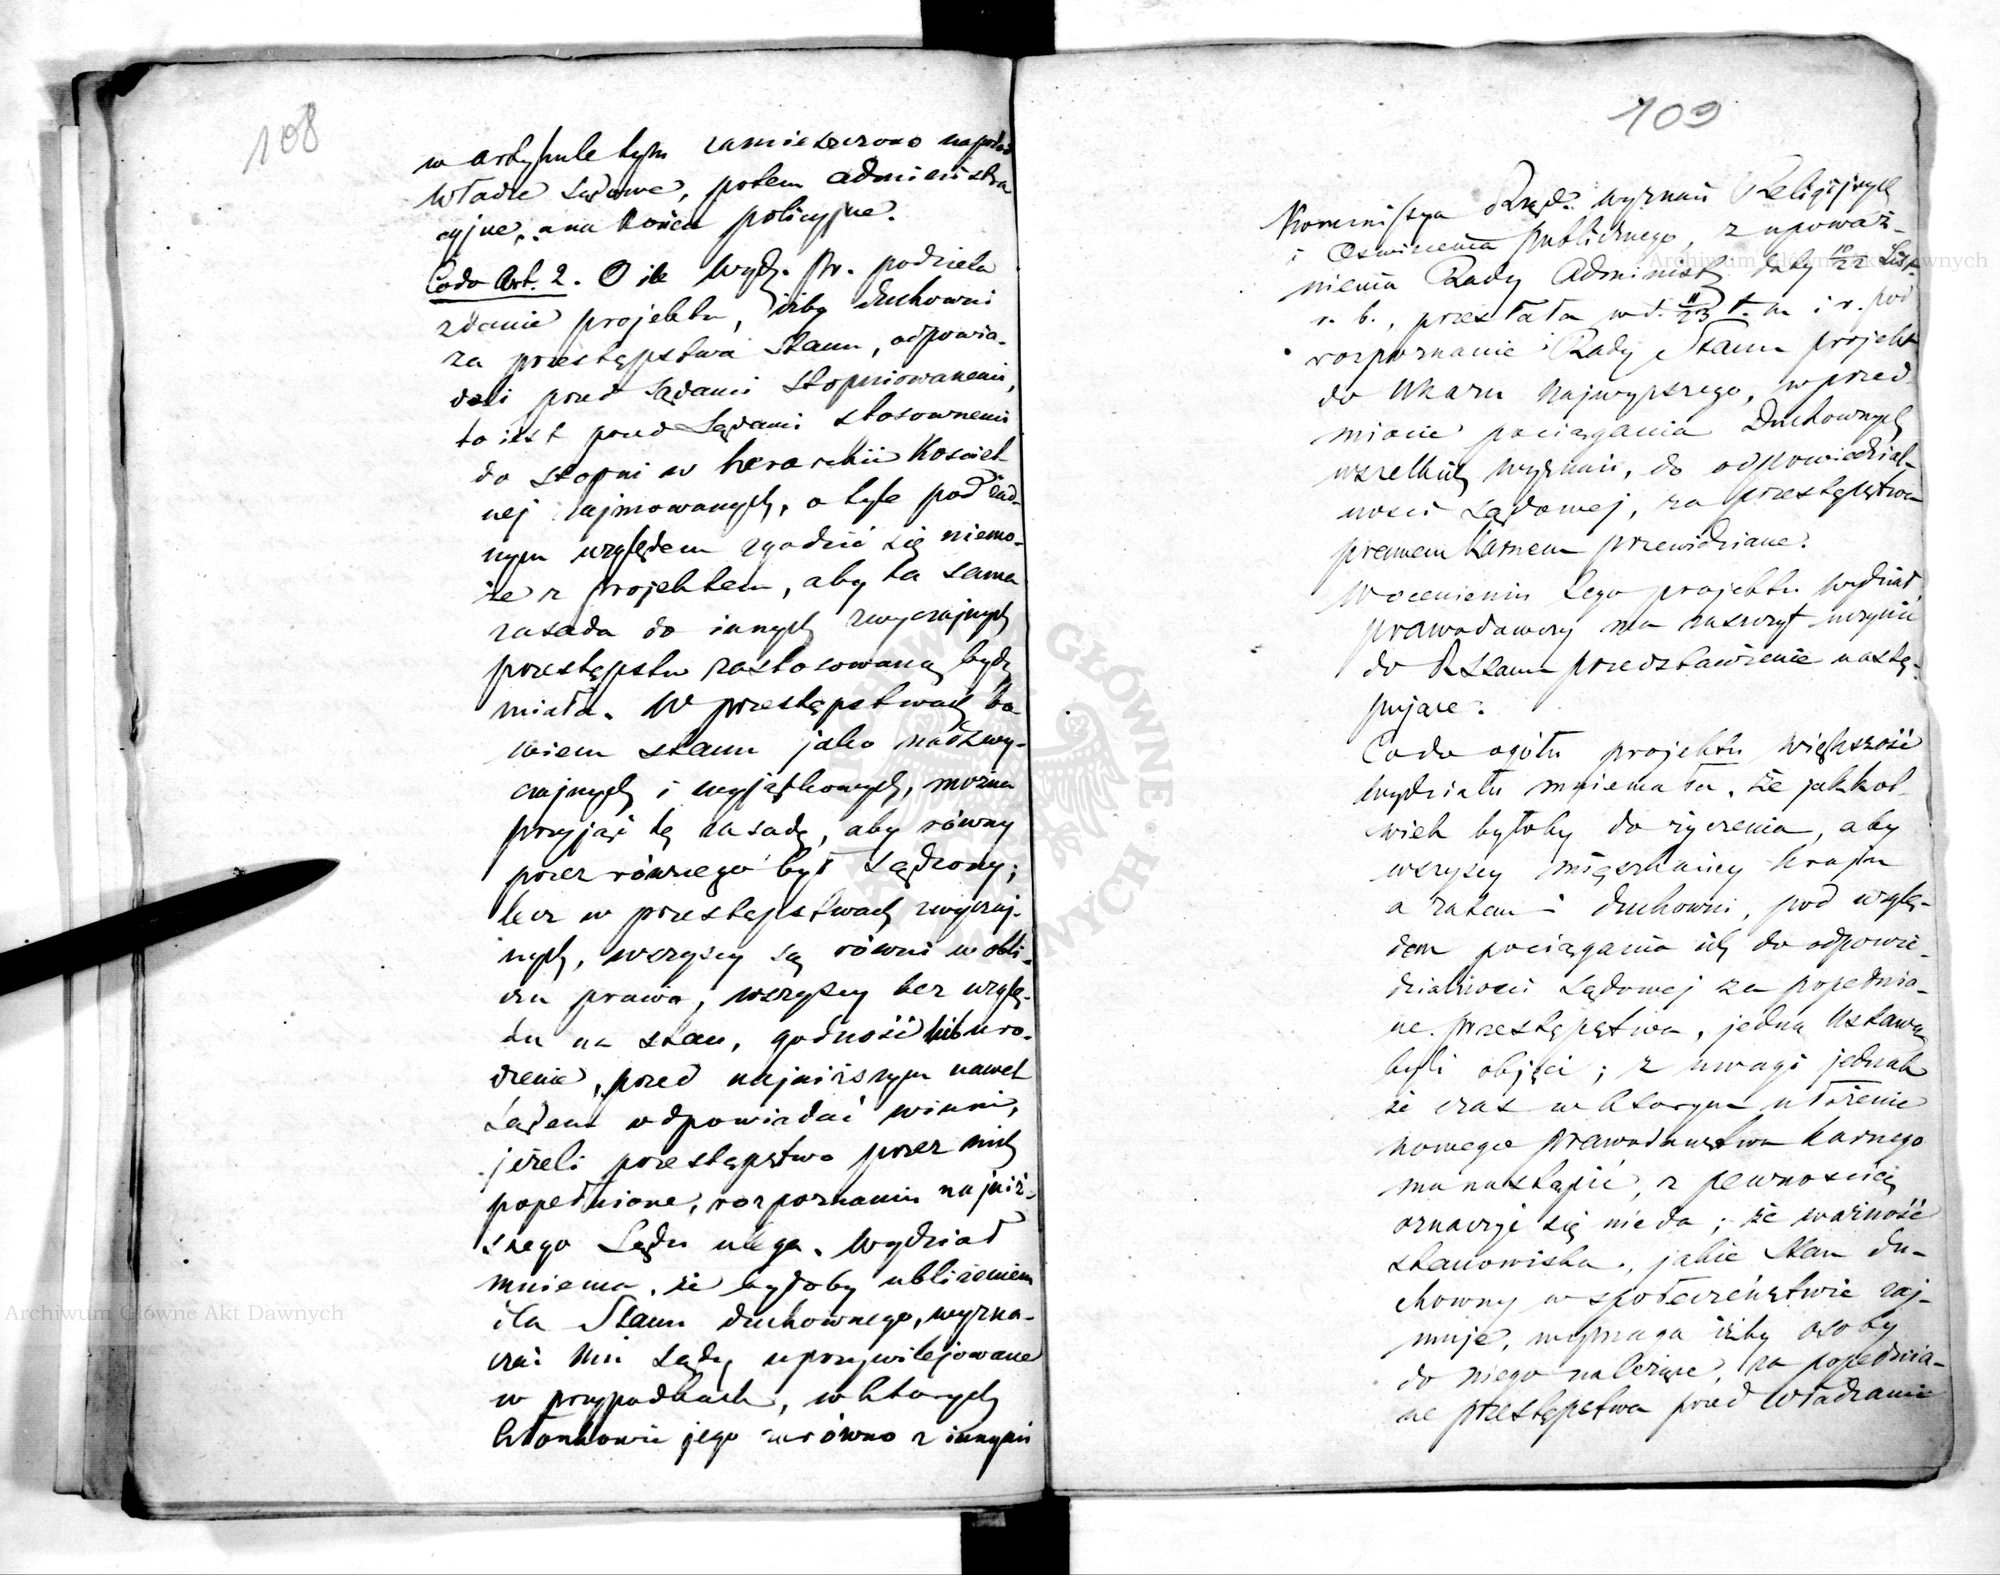 108
w artykule tym zamieszczono naprzód
władze sądowe, potem administra
cyjne, a na końcu policyjne.
Codo Art. 2. O ile Wydz. Pr. podziela
zdanie projektu, iżby duchowni
za przestępstwa Stanu, odpowia-
dali przed sądami stopniowanemi,
to iest przed Sądami stosownemi
do stopni w hierarchii Kościel
nej zajmowanych, o tyle pod żad-
nym względem zgodzić się niemo-
że z projektem, aby ta sama
zasada do innych zwyczajnych
przestępstw zastosowaną być
miała. W przestępstwach bo
wiem stanu jako nadzwy-
czajnych i wyjątkowych, można
przyjąć tę zasadę, aby równy
przez równego był sądzony;
lecz w przestępstwach zwyczaj-
nych, wszyscy są równi w obli-
czu prawa, wszyscy bez wzglę-
du na stan, godność lub uro-
dzenie, przed najniższym nawet
Sądem odpowiadać winni,
jeżeli przestępstwo przez nich
popełnione, rozpoznaniu najniż-
szego Sądu ulega. Wydział
mniema, że byłoby ubliżeniem
dla Stanu duchownego, wyzna-
czać mu sądy uprzywilejowane
w przypadkach, w których
Członkowie jego zarówno z innymi
109
Kommissya Rząd. Wyznań Religijnych
i Oświecenia Publicznego, z upoważ-
nienia Rady Administ. daty 10/22 List.
r. b., przesłała w d. 11/23 t. m. i r. pod
rozpoznanie Rady Stanu projekt
do Ukazu Najwyższego, w przed
miocie pociągania Duchownych
wszelkich wyznań, do odpowiedzial-
ności sądowej, za przestępstwa
prawem karnem przewidziane.
W ocenieniu tego projektu Wydział
prawodawczy ma zaszczyt uczynić
do R. Stanu przedstawienie nastę-
pujące.
Codo ogółu projektu większość
Wydziału mniemała, że jakkol-
wiek byłoby do życzenia, aby
wszyscy mięszkańcy kraju
a zatem i duchowni, pod wzglę-
dem pociągania ich do odpowie-
dzialności sądowej za popełnio-
ne przestępstwa, jedną Ustawą
byli objęci; z uwagi jednak
że czas w którym ułożenie
nowego prawodawstwa karnego
ma nastąpić, z pewnością
oznaczyć się nieda; że ważność
stanowiska, jakie Stan du-
chowny w społeczeństwie zaj-
muje, wymaga iżby osoby
do niego należące, za popełnio-
ne przestępstwa przed Władzami
Archiwum Główne Akt Dawnych
Archiwum Główne Akt Dawnych
ARCHIWUM GŁÓWNE AKT DAWNYCH